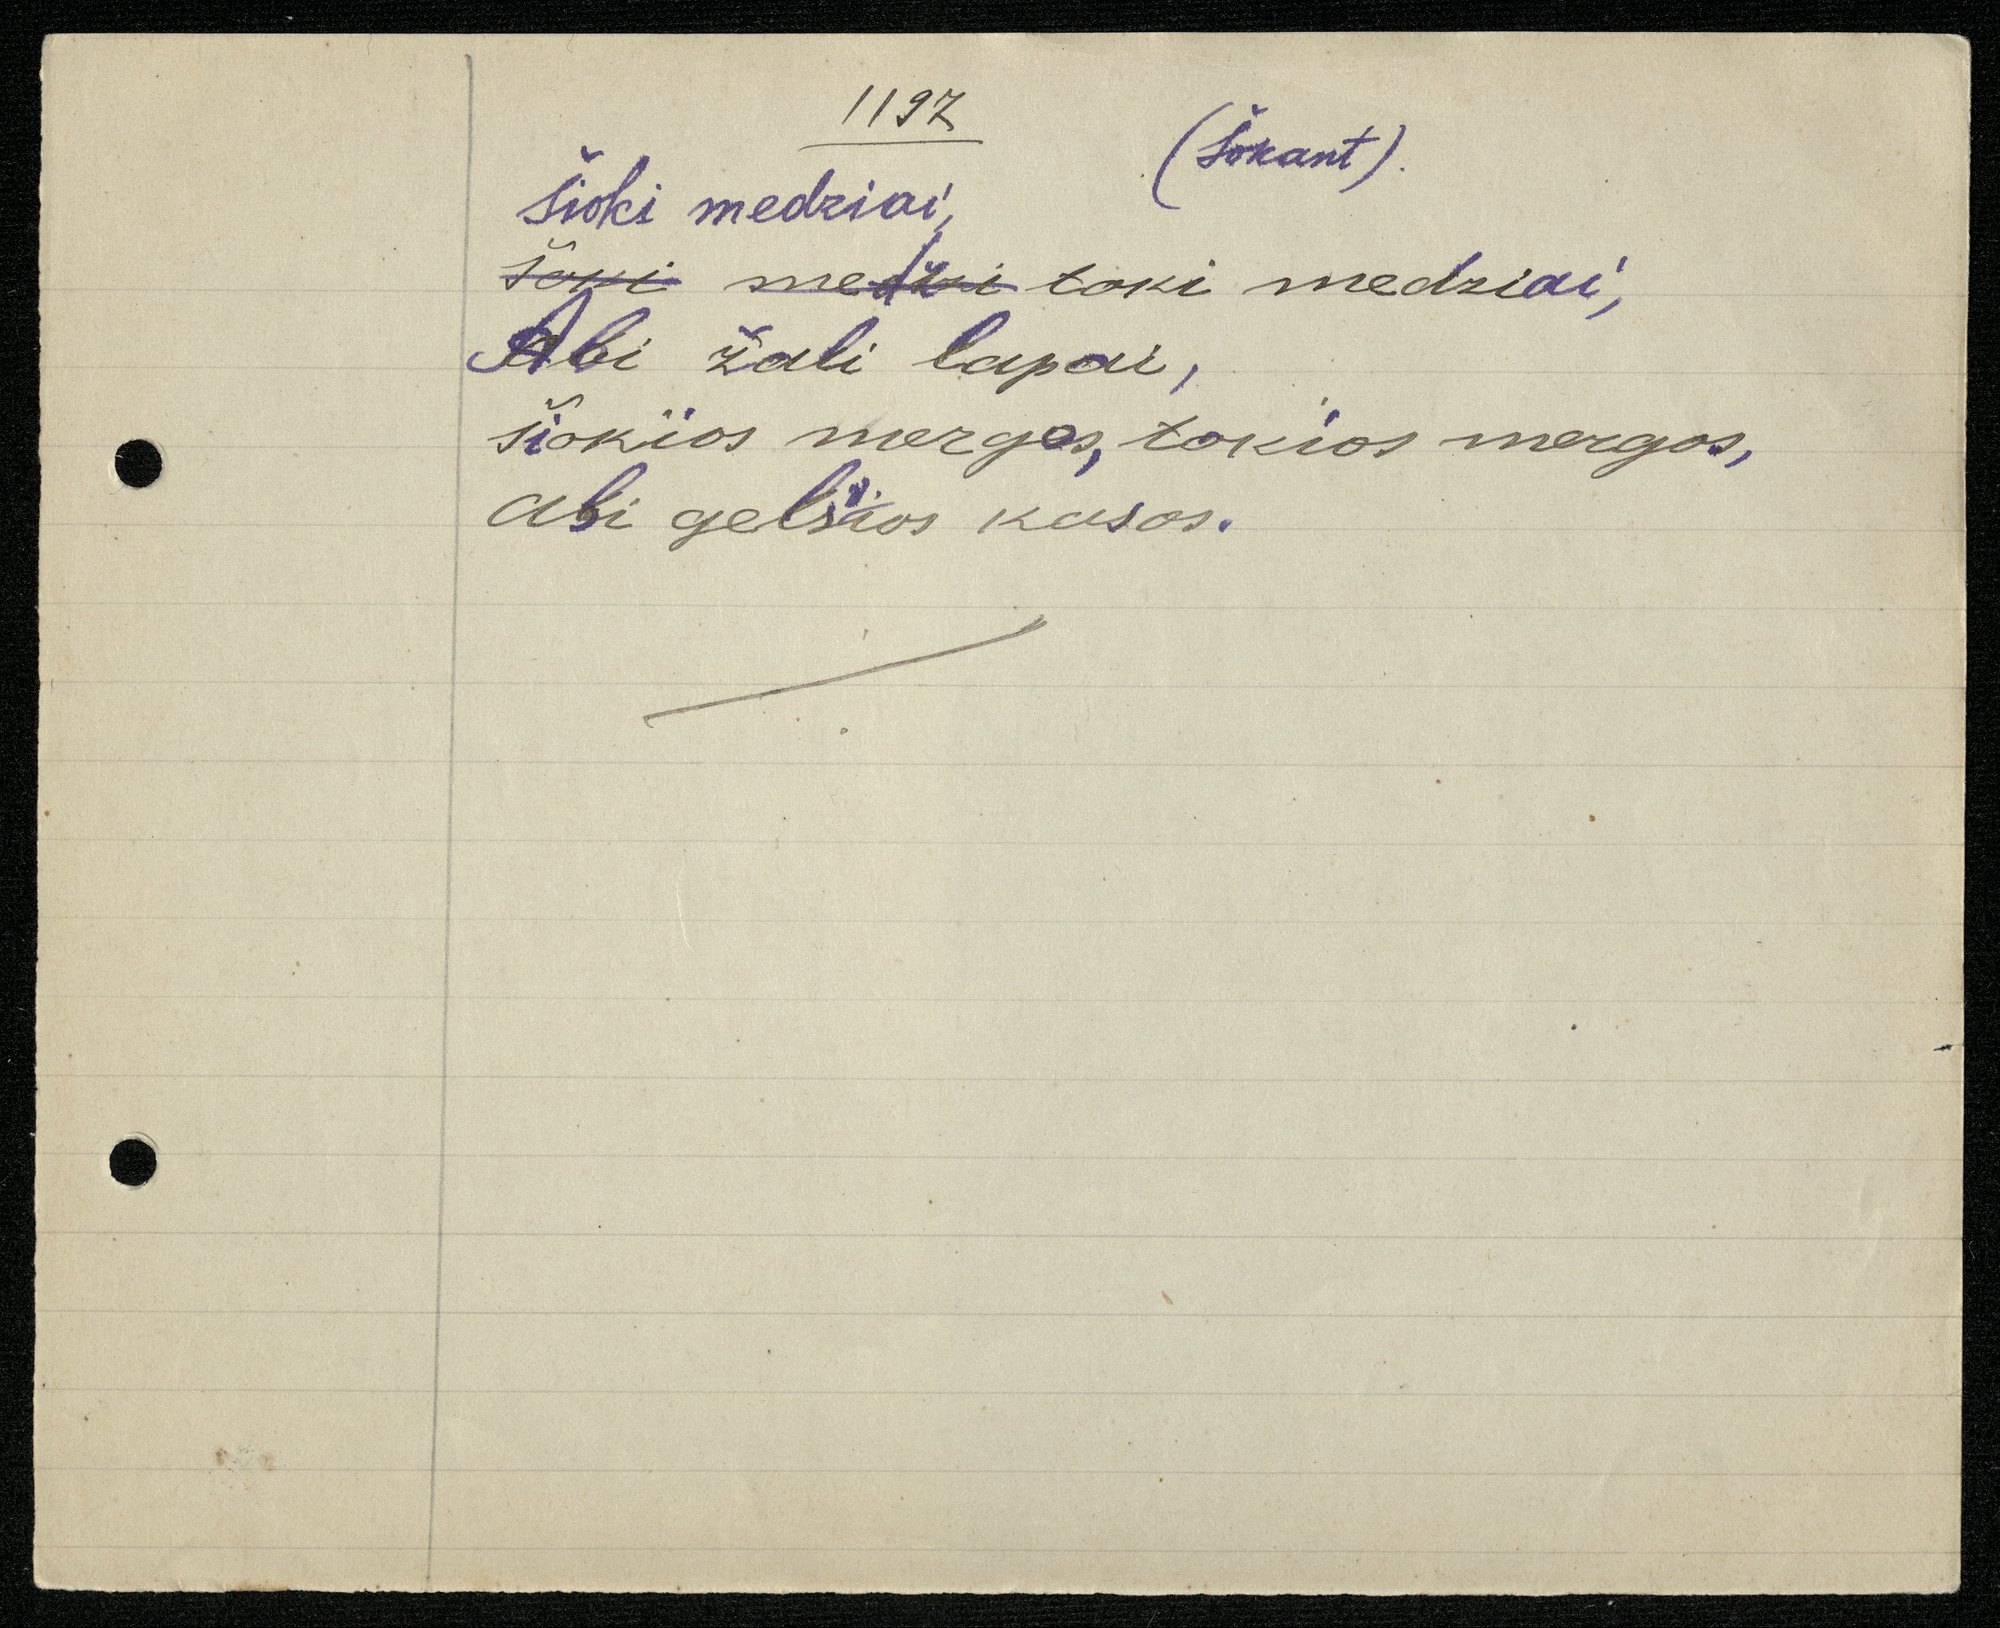 1197
(Šokant).
Šioki medziai,
šoki medži toki medziai,
Abi žali lapai,
šiokios merges, tokios mergos,
abi gelšios kasos.